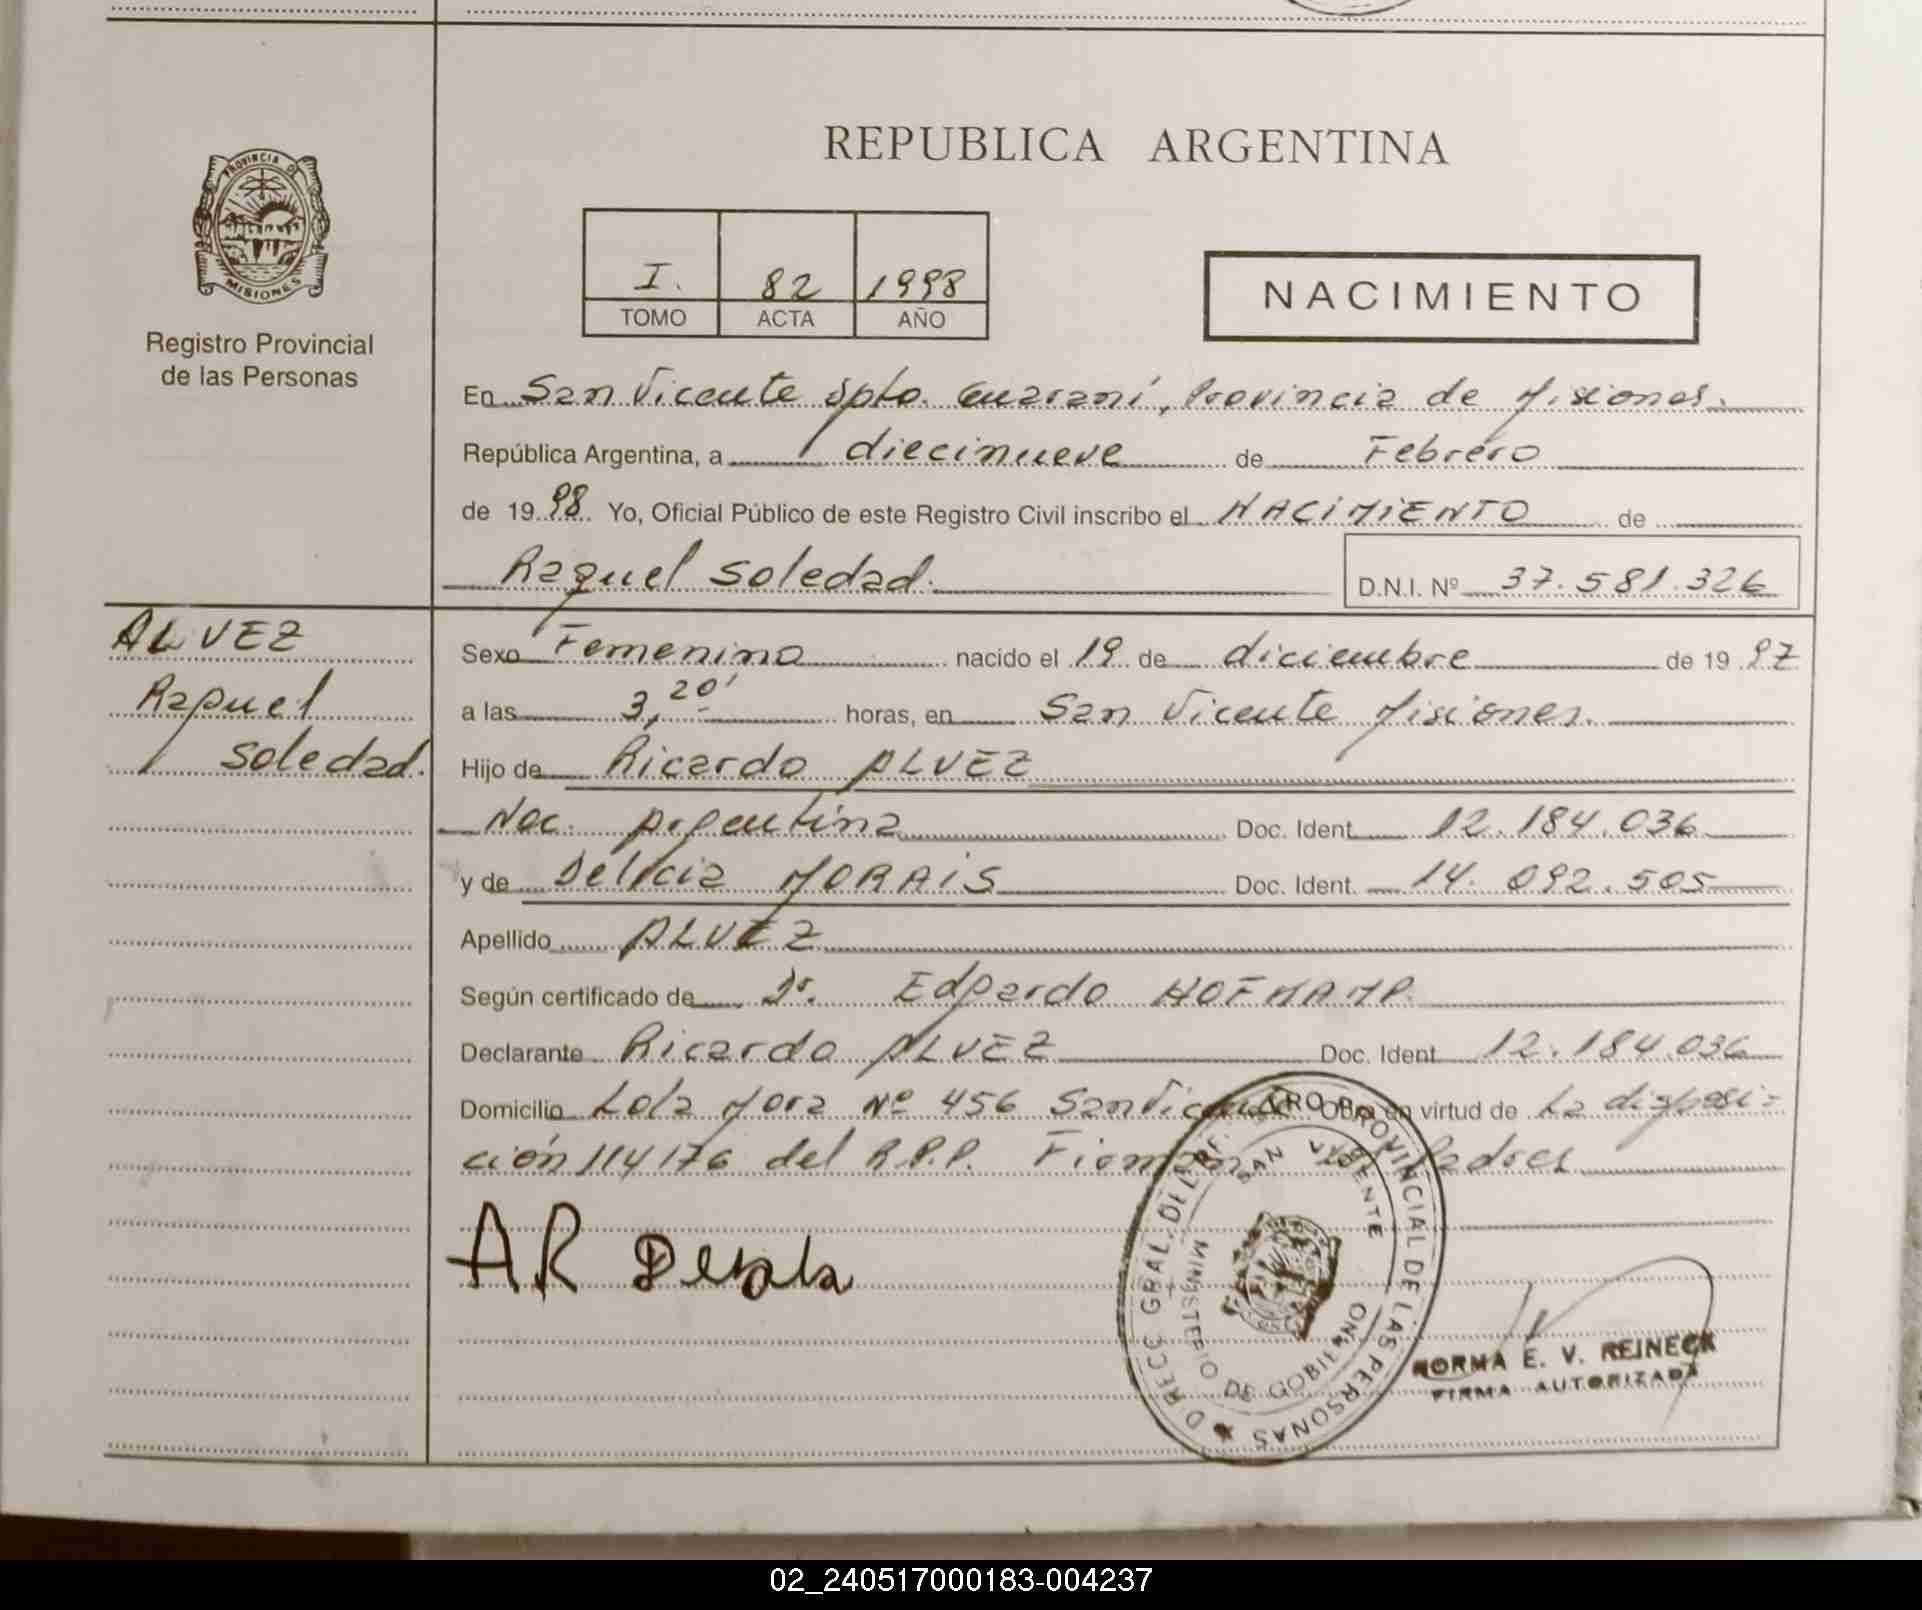 REPUBLICA ARGENTINA
PROVINCIA DE
MISIONES
Registro Provincial
de las Personas
I. 82 1998
TOMO ACTA AÑO
NACIMIENTO
En San Vicente Dpto. Guaraní, Provincia de Misiones.
República Argentina, a diecinueve de Febrero
de 1998 Yo, Oficial Público de este Registro Civil inscribo el NACIMIENTO de
Raquel Soledad.
D.N.I. Nº 37.581.326
ALVEZ
Raquel
Soledad.
Sexo Femenino nacido el 19 de diciembre de 1997
a las 3,20' horas, en San Vicente Misiones.
Hijo de Ricardo ALVEZ
Nac. Argentina Doc. Ident. 12.184.036
y de Delicia MORAIS Doc. Ident. 14.092.505
Apellido ALVEZ
Según certificado de Dr. Edgardo
Declarante Ricardo ALVEZ Doc. Ident. 12.184.036
Domicilio Lola Mora Nº 456 San Vicente Obra en virtud de La disposi-
ción 114/76 del R.P.P. Firman los Padres
AR
DIRECC GRAL. DEL REGISTRO PROVINCIAL DE LAS PERSONAS
SAN VICENTE
MINISTERIO DE GOBIERNO
NORMA E. V. REINECK
FIRMA AUTORIZADA
02_240517000183-004237